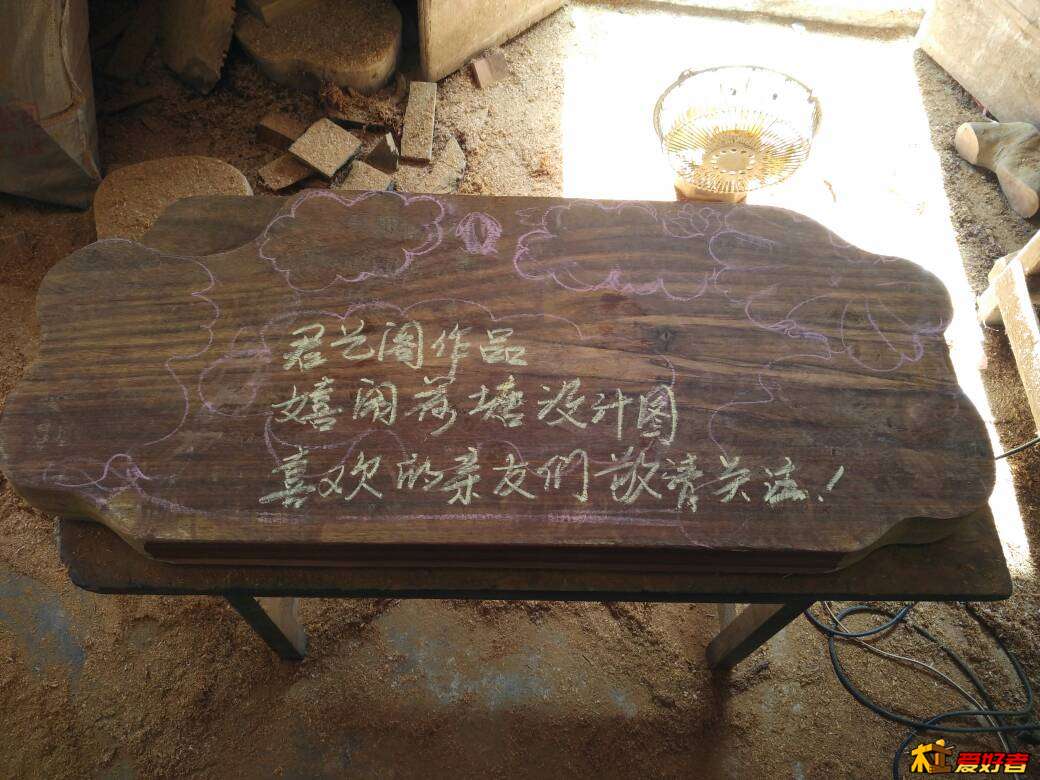 君艺阁作品
嬉闹荷塘设计图
喜欢的亲友们敬请关注!
爱好者